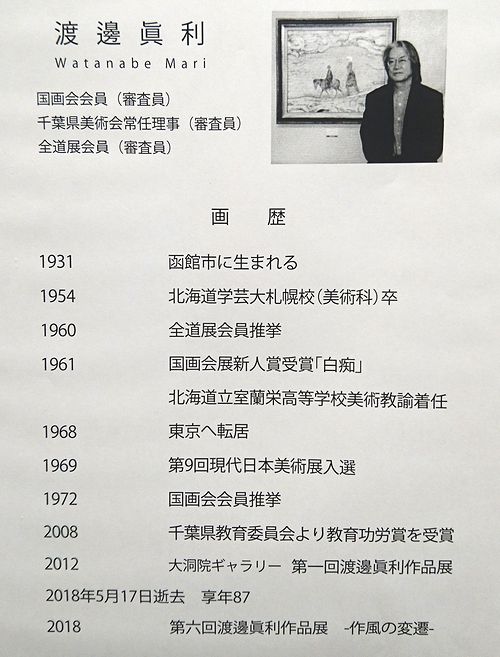 渡邊眞利
Watanabe Mari
国画会会員（審査員）
千葉県美術会常任理事（審査員）
全道展会員（審査員）
画 歴
1931 函館市に生まれる
1954 北海道学芸大札幌校（美術科）卒
1960 全道展会員推挙
1961 国画会展新人賞受賞「白痴」
北海道立室蘭栄高等学校美術教諭着任
1968 東京へ転居
1969 第9回現代日本美術展入選
1972 国画会会員推挙
2008 千葉県教育委員会より教育功労賞を受賞
2012 大洞院ギャラリー 第一回渡邊眞利作品展
2018年5月17日逝去 享年87
2018 第六回渡邊眞利作品展 -作風の変遷-